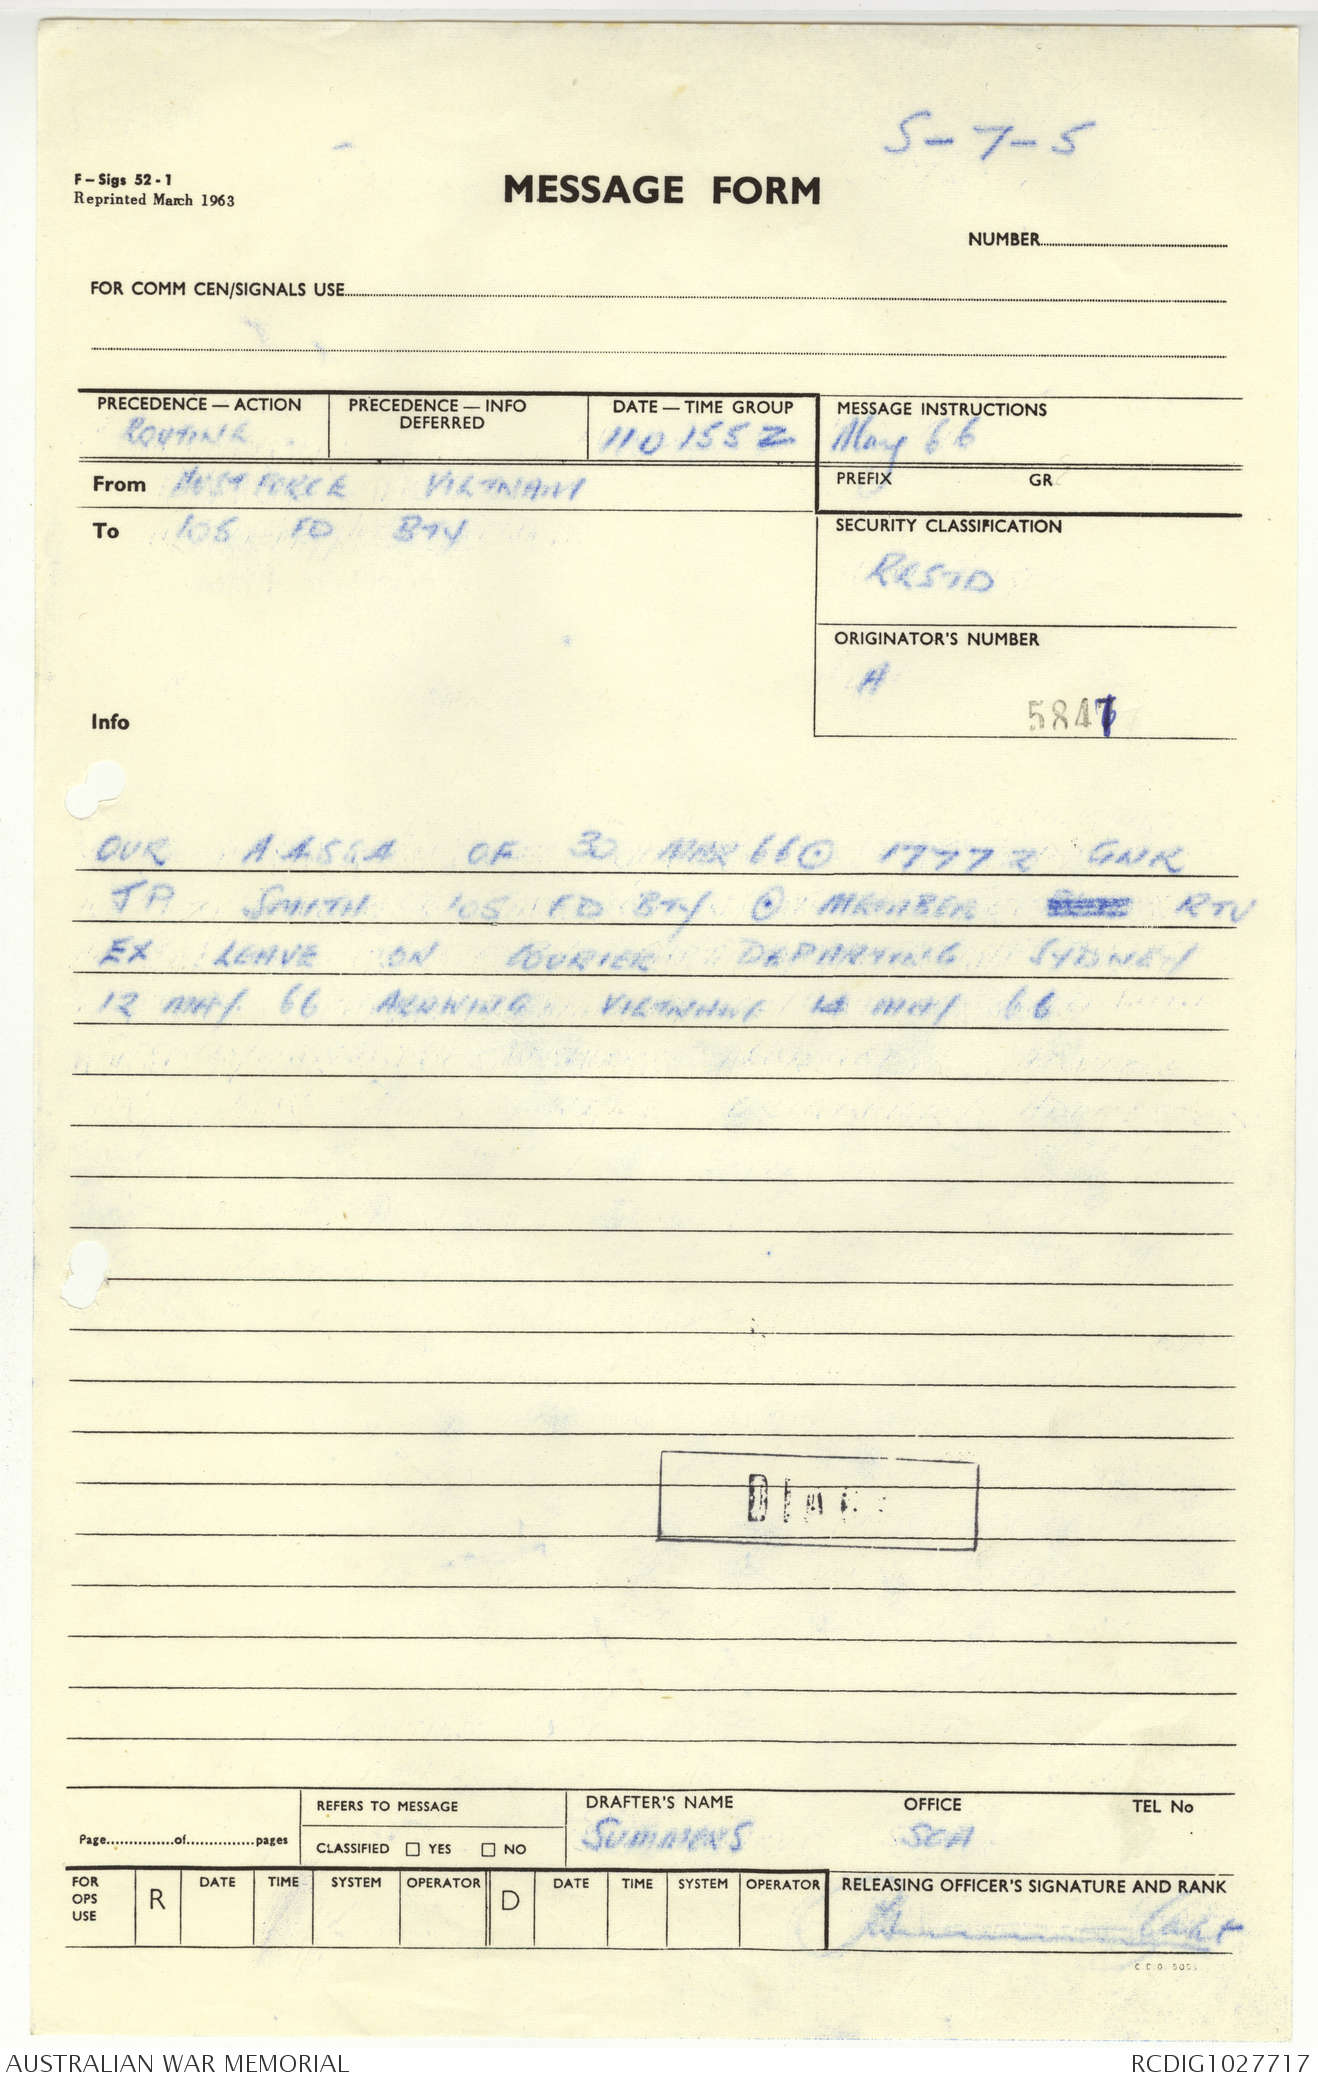 S-7-5
F-Sigs 52-1
Reprinted March 1963
MESSAGE FORM
NUMBER
FOR COMM CEN/SIGNALS USE
PRECEDENCE — ACTION
ROUTINE
PRECEDENCE — INFO
DEFERRED
DATE — TIME GROUP
110155Z
MESSAGE INSTRUCTIONS
May 66
From AUSTFORCE VIETNAM
PREFIX GR
To 105 FD BTY
SECURITY CLASSIFICATION
RESTD
ORIGINATOR'S NUMBER
A
5847
Info
OUR OF 30 MAR 66 17772 GNR
JP SMITH 105 FD BTY MEMBER RTU
EX LEAVE ON COURIER DEPARTING SYDNEY
12 MAY 66 ARRIVING VIETNAM 14 MAY 66
Page of pages
REFERS TO MESSAGE
CLASSIFIED YES NO
DRAFTER'S NAME
SUMMERS
OFFICE
SCA
TEL No
FOR OPS USE
R DATE TIME SYSTEM OPERATOR
D DATE TIME SYSTEM OPERATOR
RELEASING OFFICER'S SIGNATURE AND RANK
Capt
AUSTRALIAN WAR MEMORIAL
RCDIG1027717